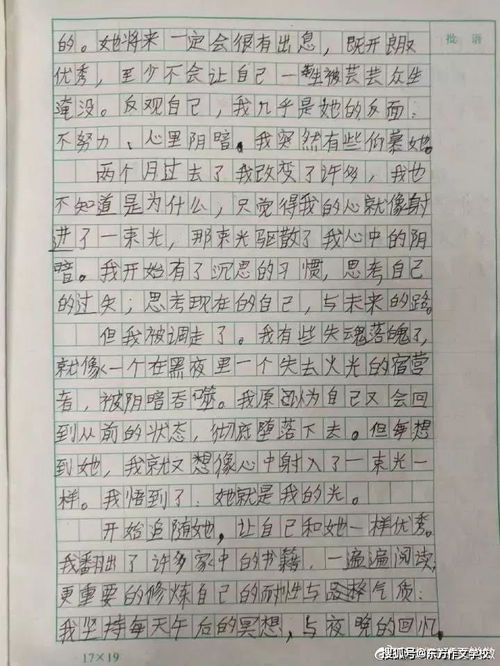 批 语
的。她将来一定会很有出息，既开朗又
优秀，至少不会让自己一生被芸芸众生
淹没。反观自己，我几乎是她的反面：
不努力、心里阴暗。我突然有些仰慕她。
两个月过去了我改变了许多，我也
不知道是为什么，只觉得我的心就像射
进了一束光，那束光驱散了我心中的阴
暗。我开始有了沉思的习惯，思考自己
的过失；思考现在的自己，与未来的路。
但我被调走了。我有些失魂落魄了，
就像一个在黑夜里一个失去火光的宿营
者，被阴暗吞噬。我原以为自己又会回
到从前的状态，彻底堕落下去。但每想
到她，我就又想像心中射入了一束光一
样。我悟到了：她就是我的光。
开始追随她，让自己和她一样优秀。
我翻出了许多家中的书籍，一遍遍阅读，
更重要的修炼自己的耐性与气质：
我坚持每天午后的冥想，与夜晚的回忆。
17×19
搜狐号@东方作文学校